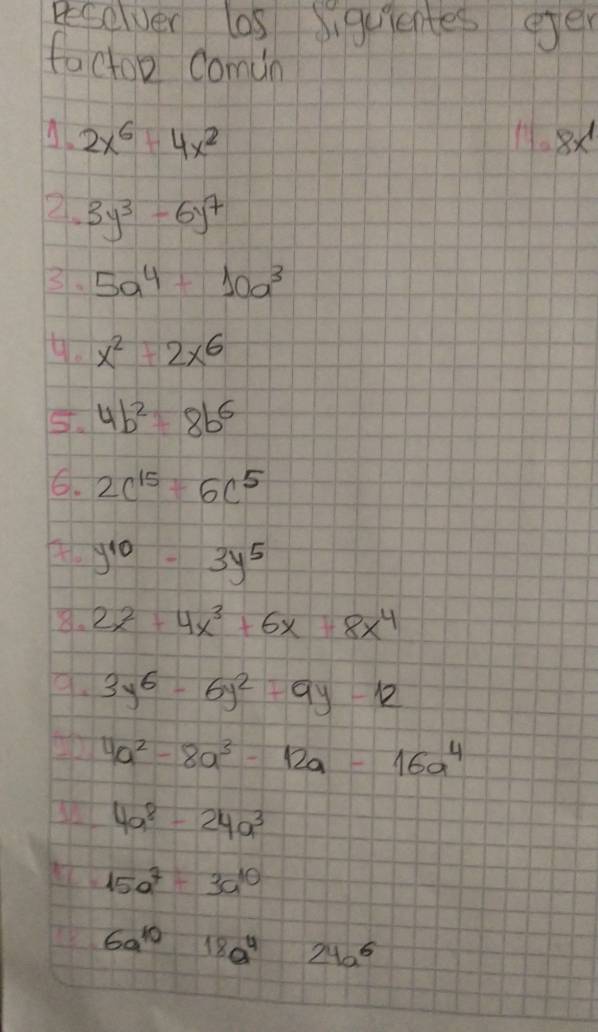 Resolver los siguientes ejer
factor Común
1. 2x⁶ + 4x²
14. 8x¹
2. 3y³ - 6y⁷
3. 5a⁴ + 10a³
4. x² + 2x⁶
5. 4b² + 8b⁶
6. 2c¹⁵ + 6c⁵
7. y¹⁰ - 3y⁵
8. 2x² + 4x³ + 6x + 8x⁴
9. 3y⁶ - 6y² + 9y - 12
10. 4a² - 8a³ - 12a - 16a⁴
11. 4a⁸ - 24a³
12. 15a⁷ + 3a¹⁰
13. 6a¹⁰ 18a⁴ 24a⁶